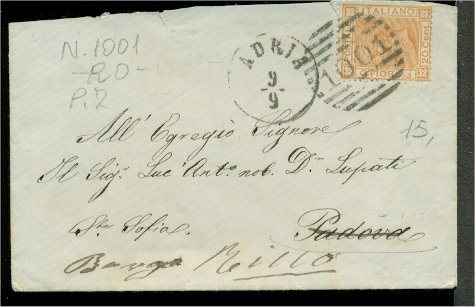 N. 1001
-RO-
P.2
ADRIA
9
9
1001
ITALIANO
20 Cent.
15,
All' Egregio Signore
Il Sigr Luc' Anto nob. Dr Lupati
Sta Sofia
Padova
Rillo